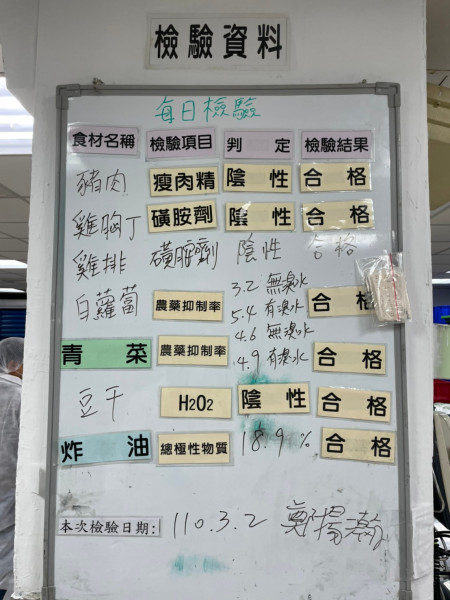 檢驗資料
每日檢驗
食材名稱 檢驗項目 判定 檢驗結果
豬肉 瘦肉精 陰性 合格
雞胸丁 磺胺劑 陰性 合格
雞排 磺胺劑 陰性 合格
3.2 無臭水
白蘿蔔 農藥抑制率 5.4 有臭水 合格
4.6 無臭水
青菜 農藥抑制率 4.9 有臭水 合格
豆干 H2O2 陰性 合格
炸油 總極性物質 18.9% 合格
本次檢驗日期: 110.3.2